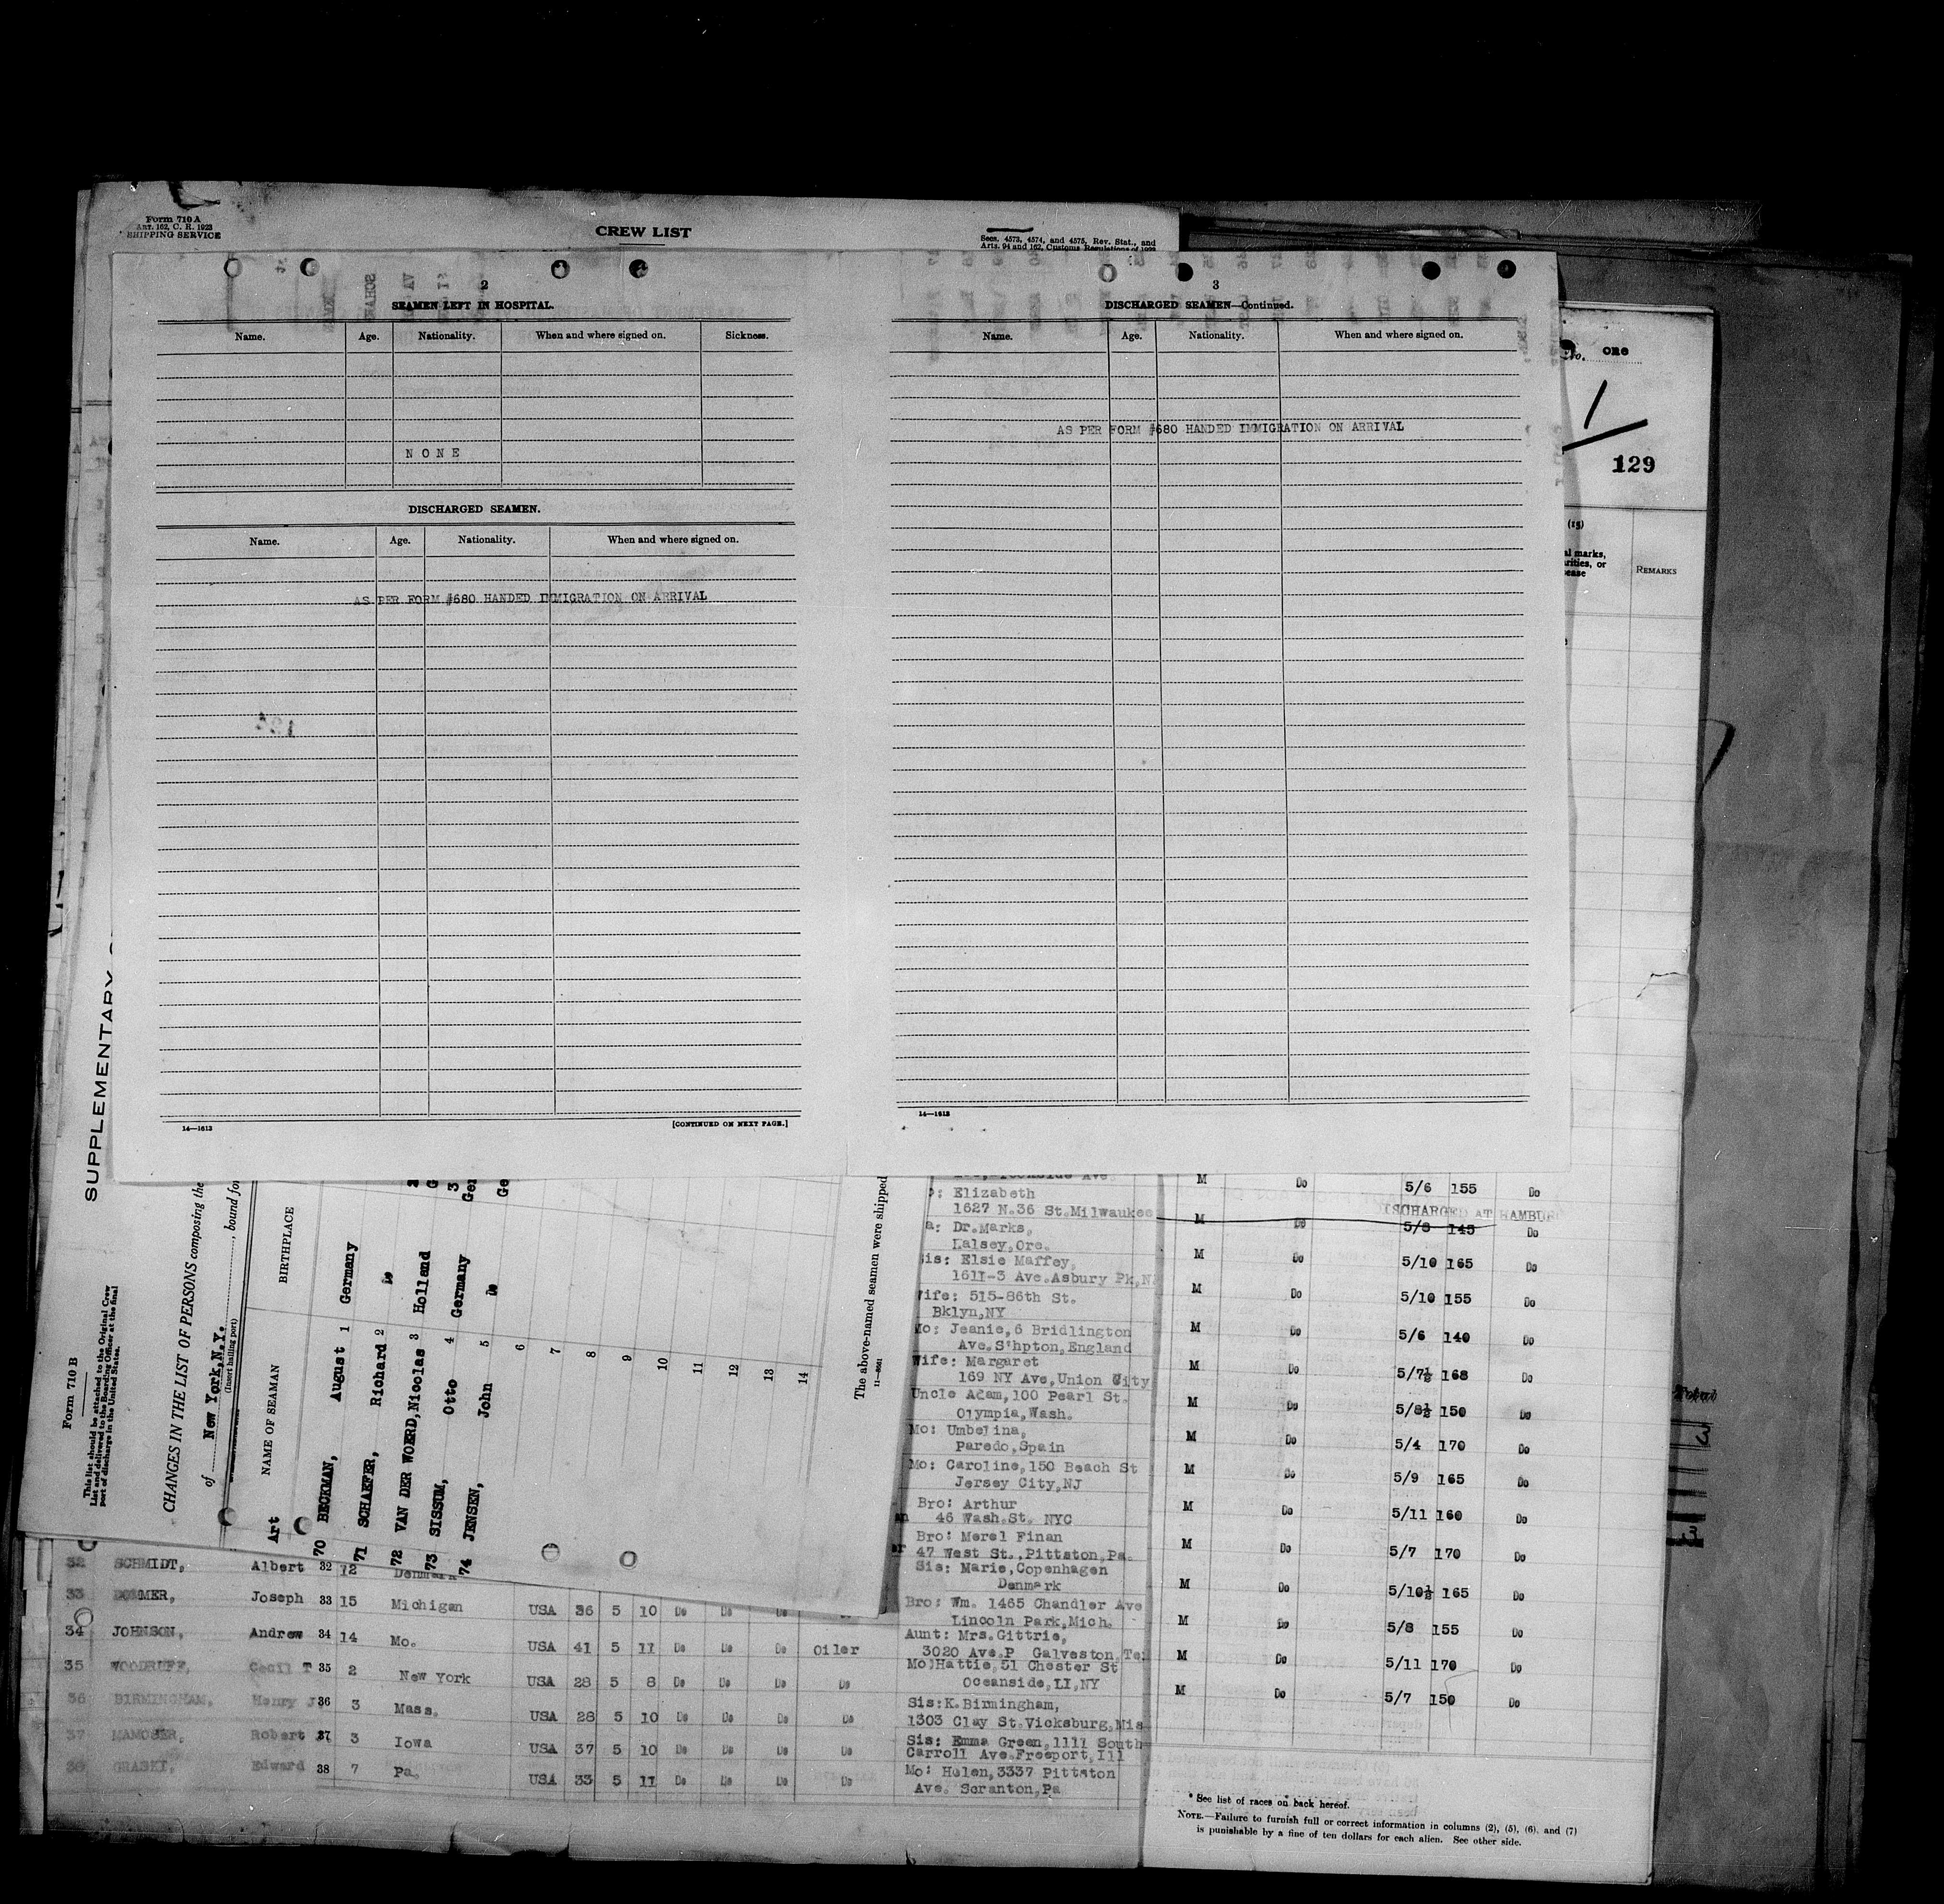 Form 710 A
ART. 162, C. R. 1923
SHIPPING SERVICE
CREW LIST
Secs. 4573, 4574, and 4575, Rev. Stat., and
Arts. 94 and 162, Customs Regulations of 1923
2
SEAMEN LEFT IN HOSPITAL.
Name. Age. Nationality. When and where signed on. Sickness.
N O N E
DISCHARGED SEAMEN.
Name. Age. Nationality. When and where signed on.
AS PER FORM #680 HANDED IMMIGRATION ON ARRIVAL
14—1613 [CONTINUED ON NEXT PAGE.]
3
DISCHARGED SEAMEN—Continued.
Name. Age. Nationality. When and where signed on.
AS PER FORM #680 HANDED IMMIGRATION ON ARRIVAL
14—1613
No. one
1
129
(15)
REMARKS
SUPPLEMENTARY
Form 710 B
This list should be attached to the Original Crew
List and delivered to the Boarding Officer at the final
port of discharge in the United States.
CHANGES IN THE LIST OF PERSONS composing the
of New York, N.Y. , bound for
(Insert hailing port)
NAME OF SEAMAN BIRTHPLACE
Art
70 BECKMAN, August 1 Germany
71 SCHAEFER, Richard 2 Do
72 VAN DER WOERD, Nicolas 3 Holland
73 SISSUM, Otto 4 Germany
74 JENSEN, John 5 Do
6
7
8
9
10
11
12
13
14
The above-named seamen were shipped
: Elizabeth
1627 N.36 St.Milwaukee
a: Dr.Marks,
Halsey,Ore.
Sis: Elsie Maffey,
1611-3 Ave.Asbury Pk,N
Wife: 515-86th St.
Bklyn,NY
Mo: Jeanie,6 Bridlington
Ave.S'hpton,England
Wife: Margaret
169 NY Ave,Union City
Uncle Adam,100 Pearl St.
Olympia,Wash.
Mo: Umbelina,
Paredo,Spain
Mo: Caroline,150 Beach St
Jersey City,NJ
Bro: Arthur
46 Wash.St. NYC
Bro: Merel Finan
47 West St.,Pittston,Pa.
Sis: Marie,Copenhagen
Denmark
Bro: Wm. 1465 Chandler Ave
Lincoln Park,Mich.
Aunt: Mrs.Gittrie,
3020 Ave.P Galveston,Te
Mo:Hattie,51 Chester St
Oceanside,LI,NY
Sis:K.Birmingham,
1303 Clay St.Vicksburg,Mis
Sis: Emma Green,1111 South
Carroll Ave.Freeport,Ill
Mo: Helen,3337 Pittston
Ave. Scranton,Pa
32 SCHMIDT, Albert 32 12 Denmark
33 Joseph 33 15 Michigan USA 36 5 10 Do Do Do Do
34 JOHNSON, Andrew 34 14 Mo. USA 41 5 11 Do Do Do Oiler
35 WOODRUFF, Cecil T 35 2 New York USA 28 5 8 Do Do Do Do
36 BIRMINGHAM, Henry J 36 3 Mass. USA 28 5 10 Do Do Do Do
37 Robert 37 3 Iowa USA 37 5 10 Do Do Do Do
38 Edward 38 7 Pa. USA 33 5 11 Do Do Do Do
M Do 5/6 155 Do
DISCHARGED AT HAMBURG
M Do 5/8 145 Do
M Do 5/10 165 Do
M Do 5/10 155 Do
M Do 5/6 140 Do
M Do 5/7½ 168 Do
M Do 5/8½ 150 Do
M Do 5/4 170 Do
M Do 5/9 165 Do
M Do 5/11 160 Do
M Do 5/7 170 Do
M Do 5/10½ 165 Do
M Do 5/8 155 Do
M Do 5/11 170 Do
M Do 5/7 150 Do
* See list of races on back hereof.
NOTE.—Failure to furnish full or correct information in columns (2), (5), (6), and (7)
is punishable by a fine of ten dollars for each alien. See other side.